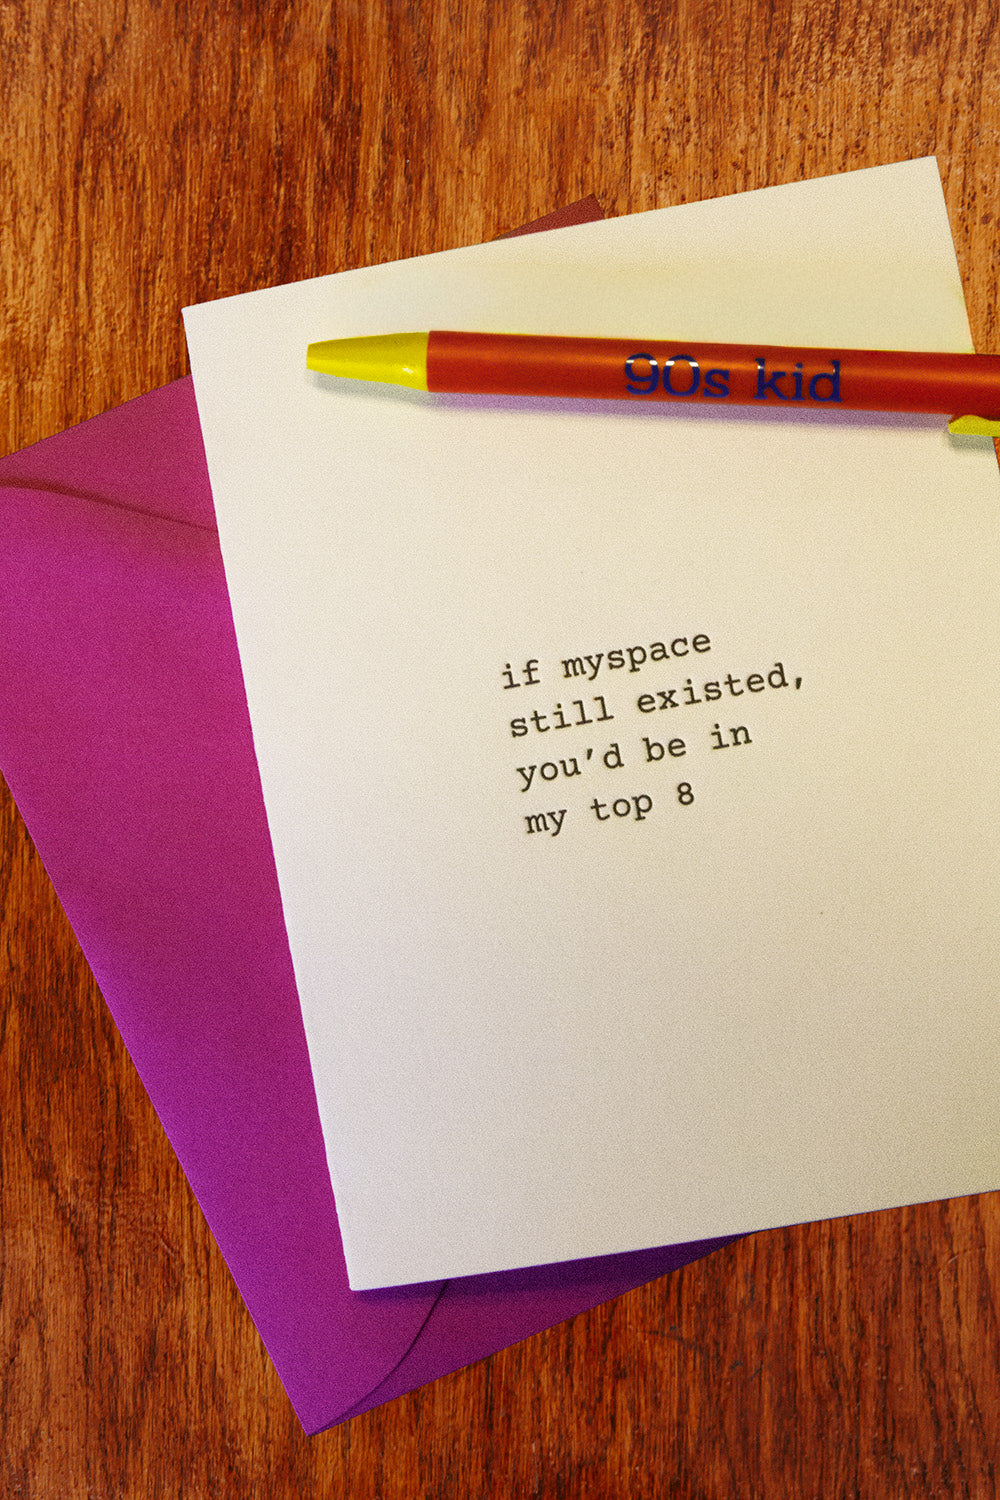 90s kid
if myspace
still existed,
you'd be in
my top 8